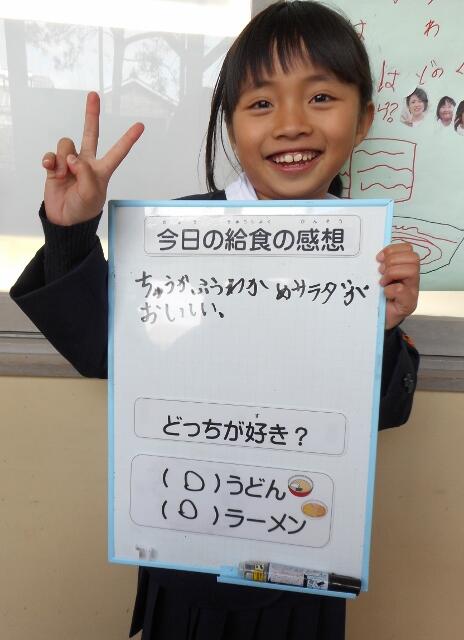 わ
は どの
今日の給食の感想
ちゅうかふうわかめサラダが
おいしい。
どっちが好き？
(○)うどん
(○)ラーメン